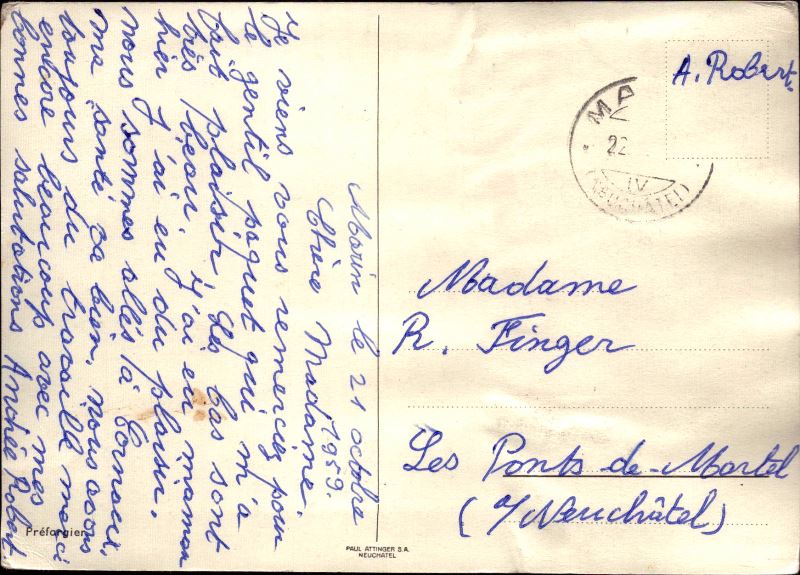 Marin le 21 octobre
1959.
Chère Madame.
Je viens vous remerciez pour
le gentil paquet qui m'a
fait plaisir, les bas sont
très beau. J'ai eu maman
hier j'ai eu du plaisir.
nous sommes allés à Cornaux,
ma santé za bien, nous avons
toujours du travaille merci
encore beaucoup avec mes
bonnes salutations Andrée Robert.
Préfargier
PAUL ATTINGER S.A.
NEUCHATEL
A. Robert
MA
22
IV
(NEUCHÂTEL)
Madame
R. Finger
Les Ponts-de-Martel
(s/Neuchâtel)